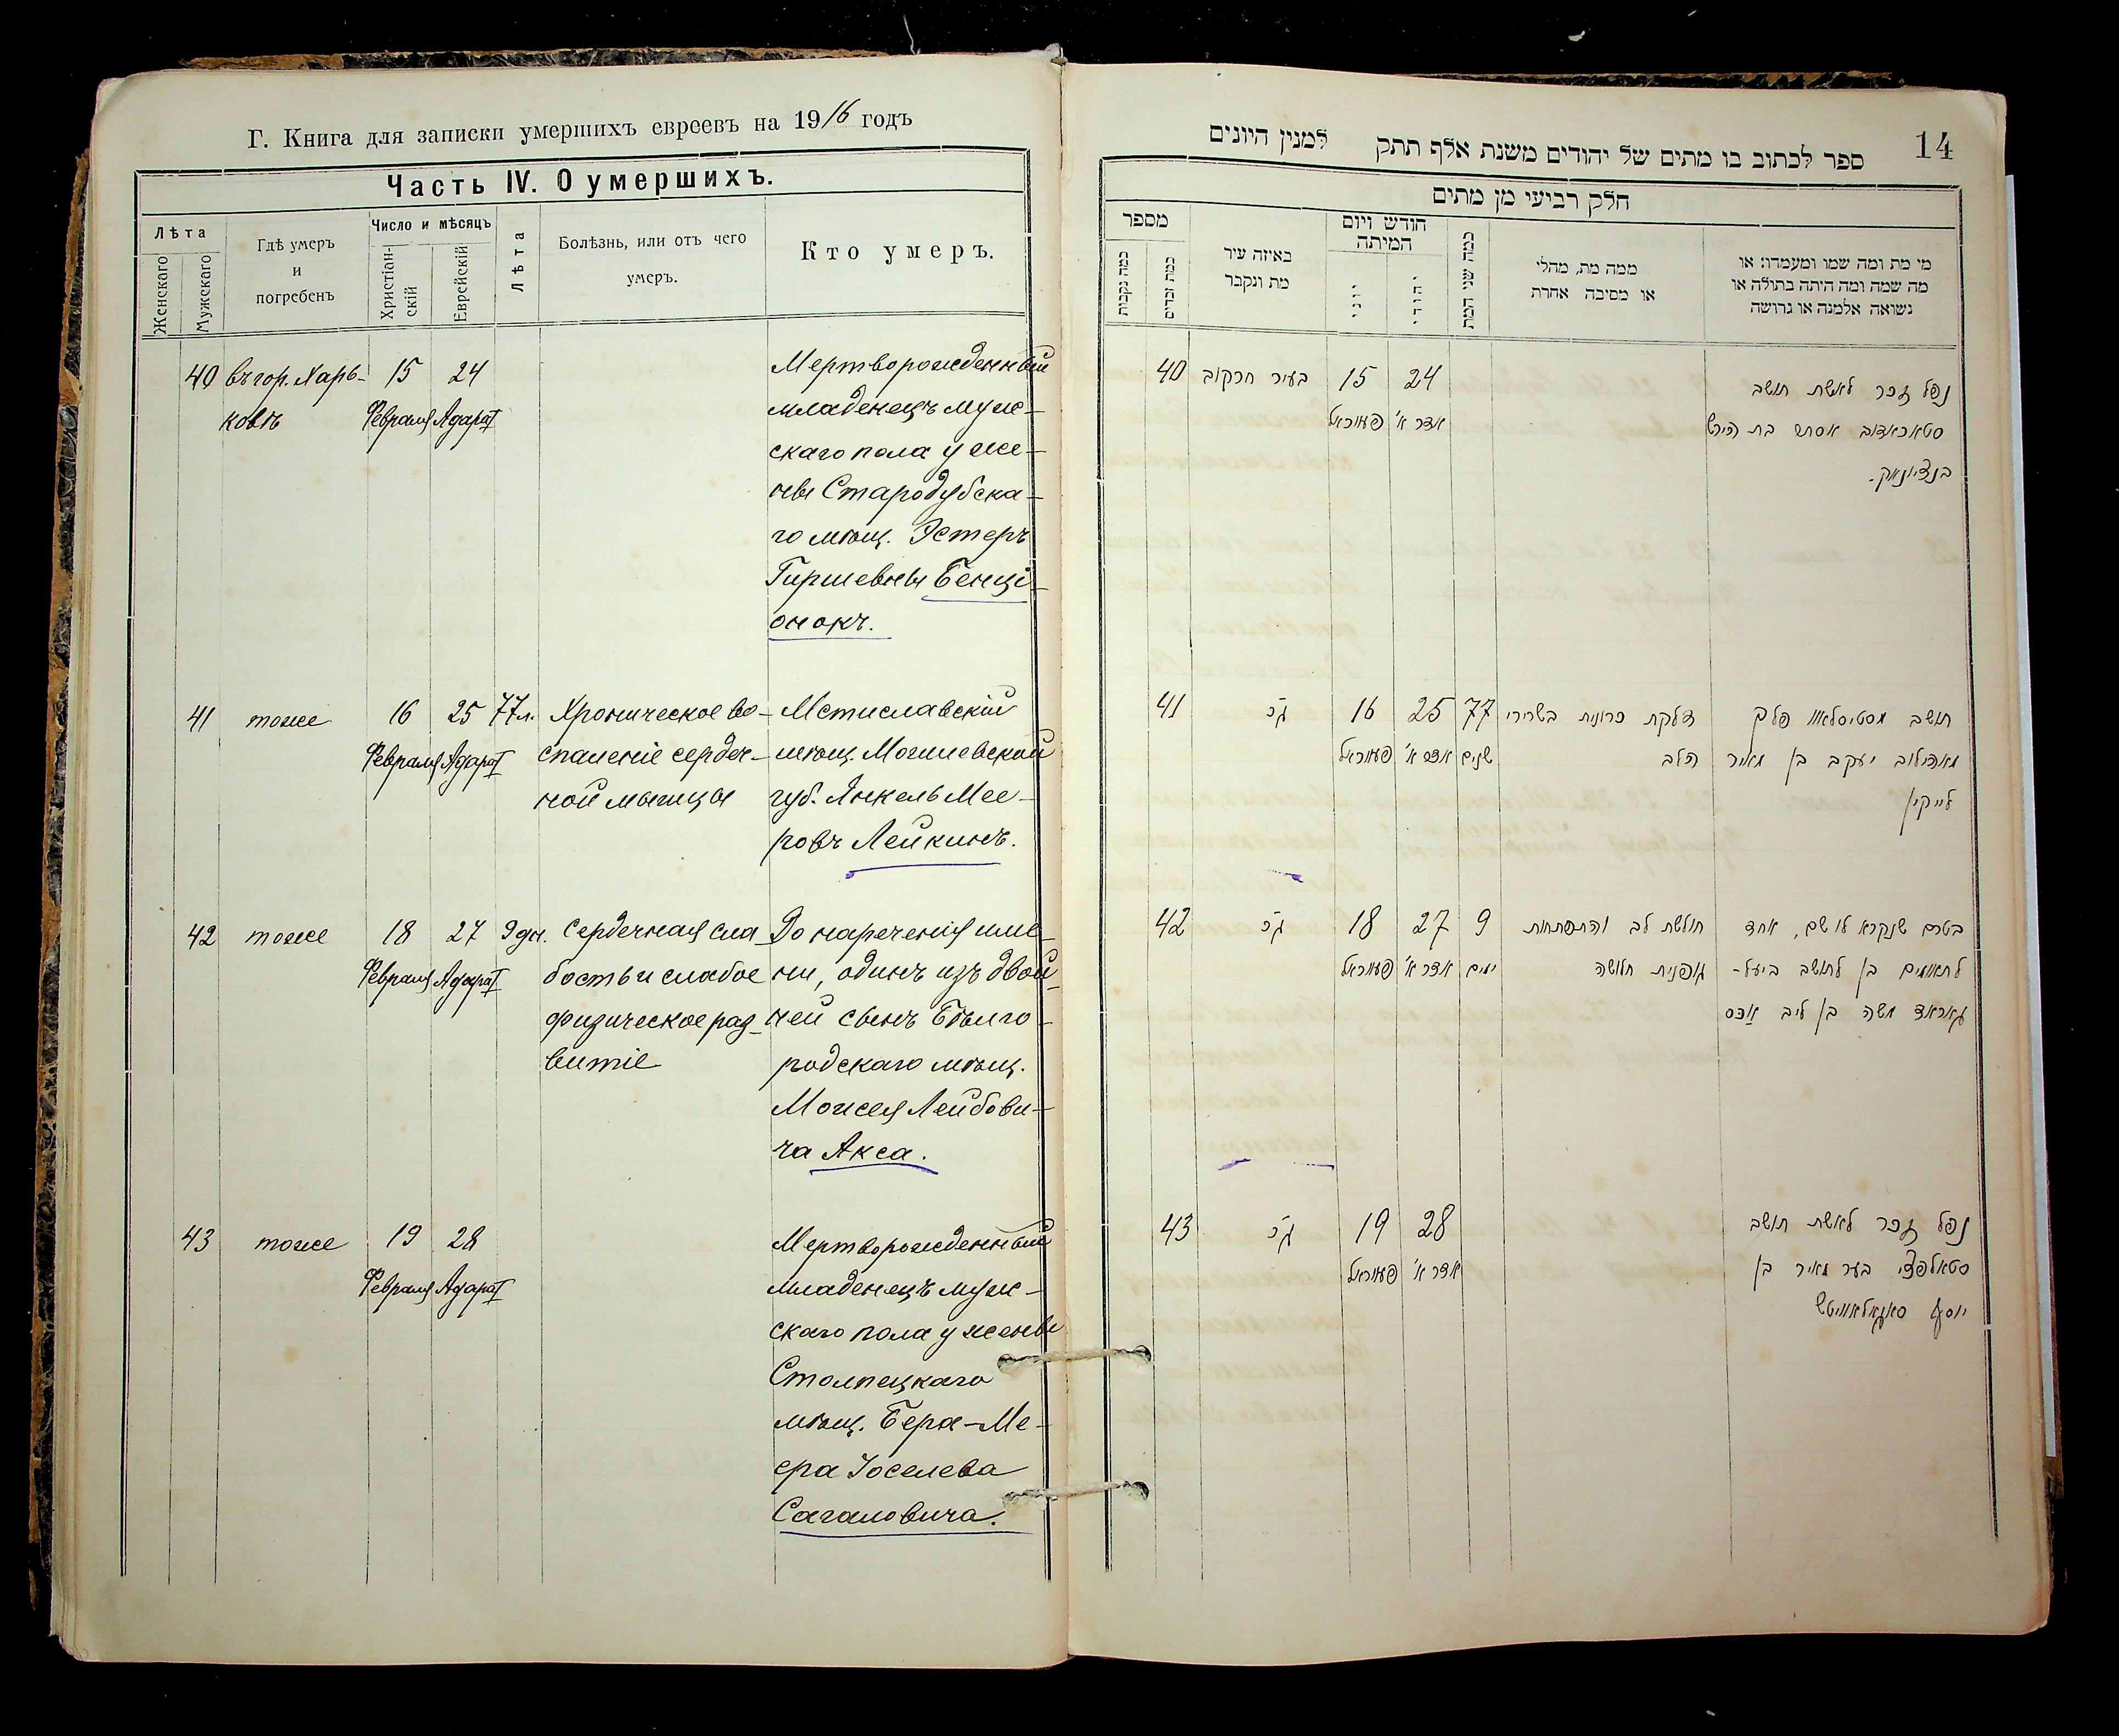 Г. Книга для записки умершихъ евреевъ на 1916 годъ
Часть IV. О умершихъ.
Лѣта
Женскаго
Мужскаго
Гдѣ умеръ
и
погребенъ
Число и мѣсяцъ
Христіан-
скій
Еврейскій
Лѣта
Болѣзнь, или отъ чего
умеръ.
Кто умеръ.
40 въ гор. Харь- 15 24 Мертворожденный
ковѣ Февраля Адара I младенецъ муж-
скаго пола у же-
ны Стародубска-
го мѣщ. Эстеръ
Гиршевны Бенці-
онокъ.
41 тоже 16 25 77 л. Хроническое во- Мстиславскій
Февраля Адара I спаленіе сердеч- мѣщ. Могилевской
ной мышцы губ. Янкель Мее-
ровъ Лейкинъ.
42 тоже 18 27 9 дн. Сердечная сла- До нареченія име-
Февраля Адара I бость и слабое ни, одинъ изъ двой-
физическое раз- ней сынъ Бѣлго-
витіе родскаго мѣщ.
Моисея Лейбови-
ча Акса.
43 тоже 19 28 Мертворожденный
Февраля Адара I младенецъ муж-
скаго пола у жены
Столпецкаго
мѣщ. Бера-Ме-
ера Іоселева
Сагаловича.
14
ספר לכתוב בו מתים של יהודים משנת אלף תתק למנין היונים
חלק רביעי מן מתים
מספר
כמה נקבות
כמה זכרים
באיזה עיר
מת ונקבר
חודש ויום
המיתה
יוני
יהודי
כמה שני המת
ממה מת, מחלי
או מסיבה אחרת
מי מת ומה שמו ומעמדו: או
מה שמה ומה היתה בתולה או
נשואה אלמנה או גרושה
40 בעיר חרקוב 15 24 נפל זכר לאשת תושב
פעוראל אדר א' אסתר בת הירש
41 ג"כ 16 25 77 דלקת כרונית בשרירי תושב מסטיסלאוו פלך
פעוראל אדר א' שנים הלב מאהילוב יעקב בן מאיר
לייקין
42 ג"כ 18 27 9 חולשת לב והתפתחות בטרם שנקרא לו שם, אחד
פעוראל אדר א' ימים גופנית חלושה לתאומים בן לתושב ביעל-
גאראד משה בן ליב אַכּס
43 ג"כ 19 28 נפל זכר לאשת תושב
פעוראל אדר א' סטאלפצי בער מאיר בן
יוסף סאגאלאוויטש